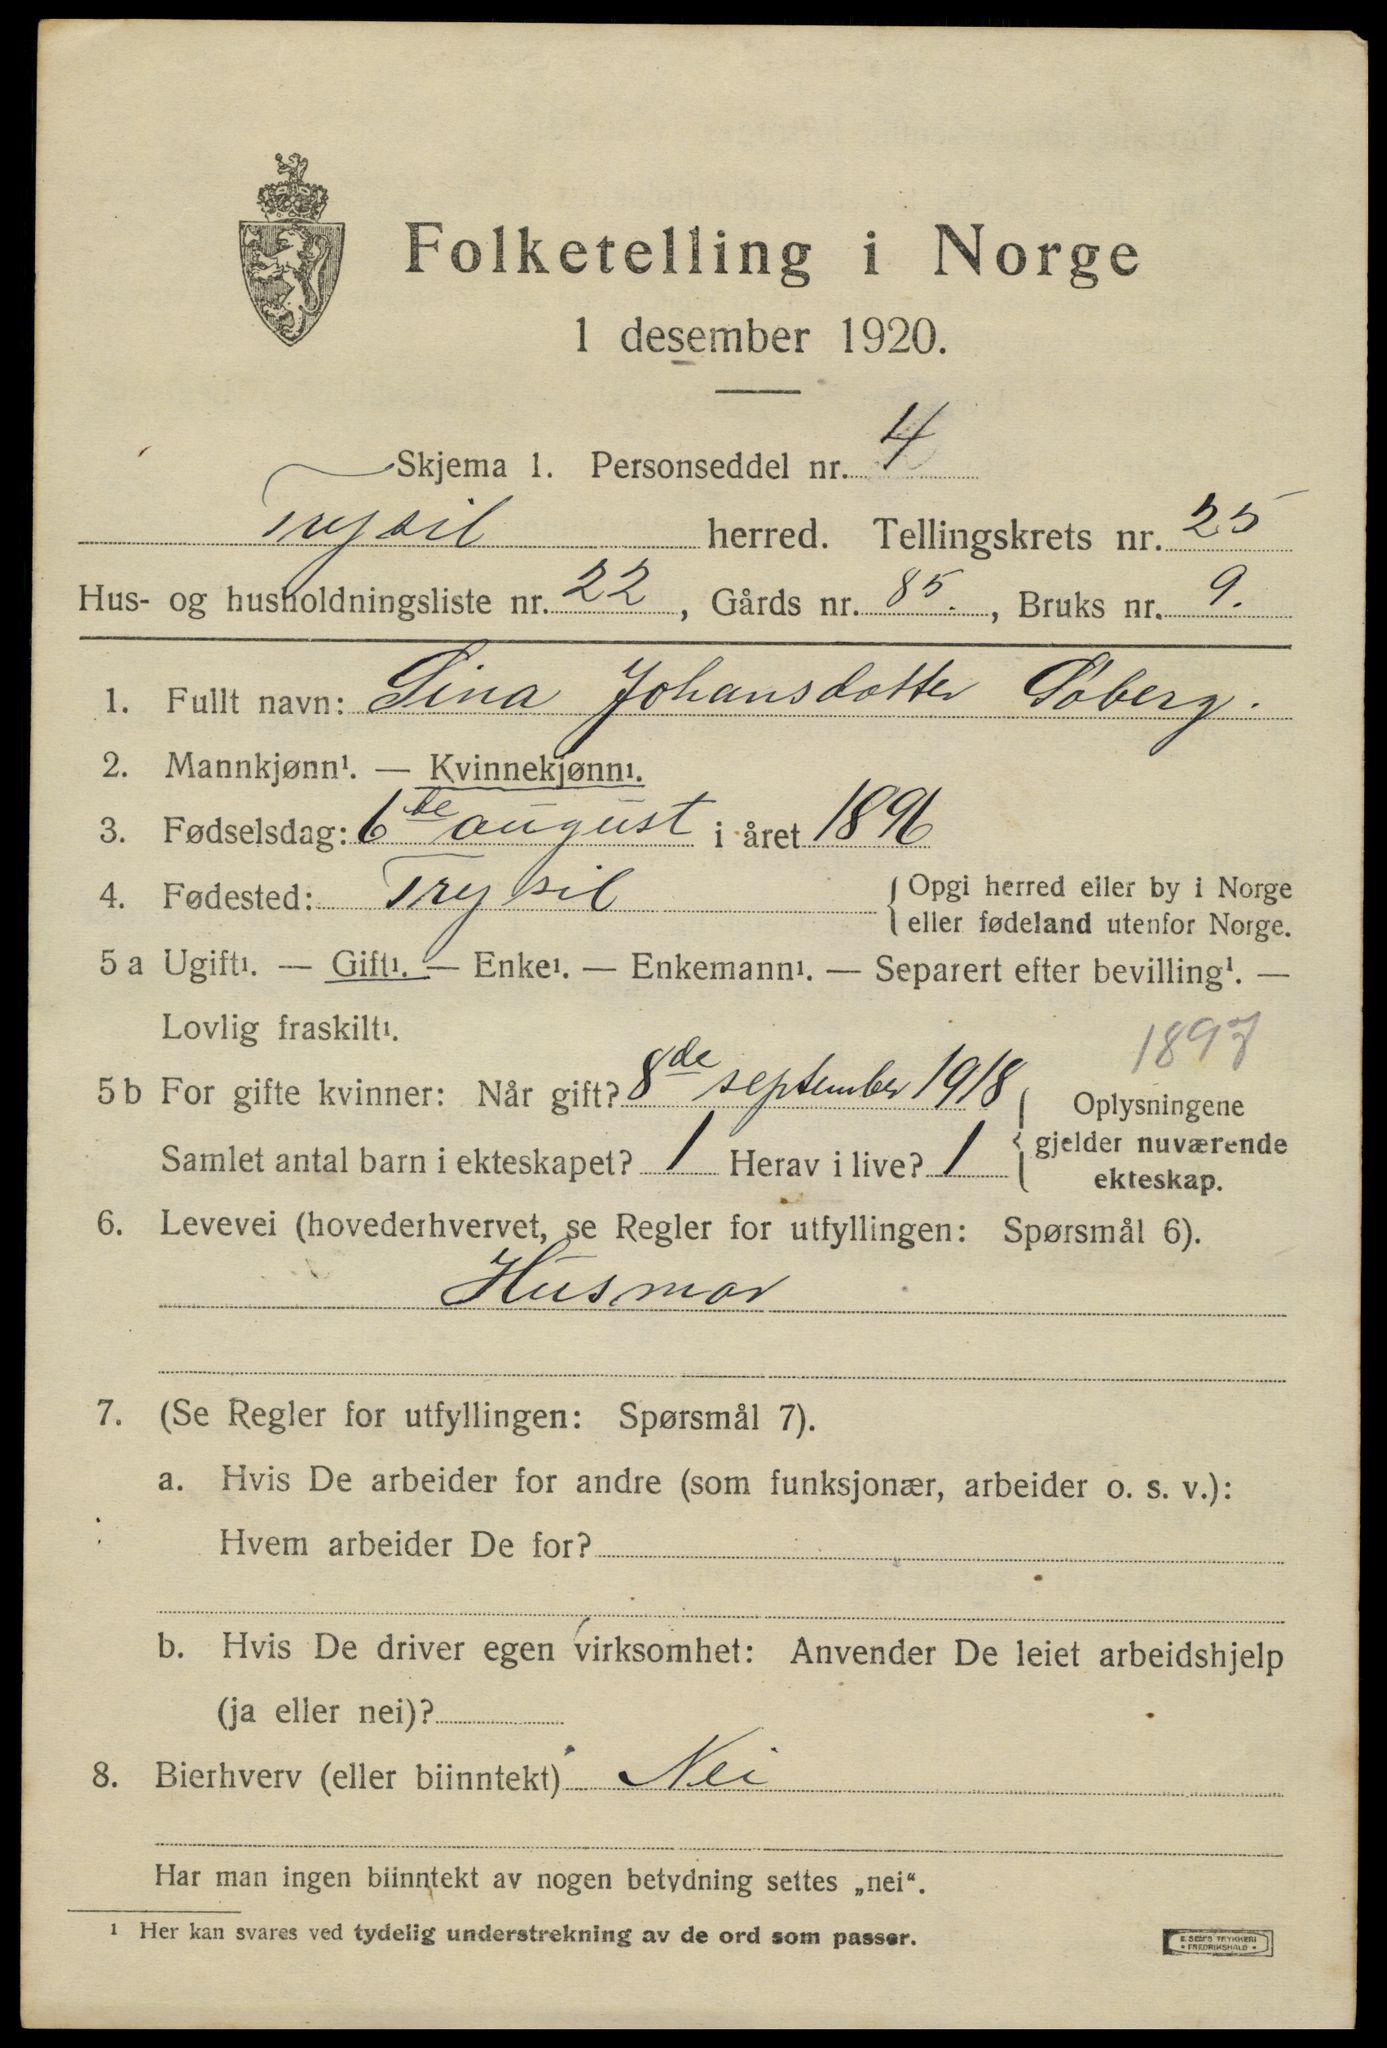 Folketelling i Norge
1 desember 1920.
Skjema 1. Personseddel nr. 4
Trysil herred. Tellingskrets nr. 25
Hus- og husholdningsliste nr. 22, Gårds nr. 85., Bruks nr. 9.
1. Fullt navn: Sina Johansdotter Søberg.
2. Mannkjønn¹. — Kvinnekjønn¹.
3. Fødselsdag: 6te august i året 1896
4. Fødested: Trysil { Opgi herred eller by i Norge
eller fødeland utenfor Norge.
5 a Ugift¹. — Gift¹. — Enke¹. — Enkemann¹. — Separert efter bevilling¹. —
Lovlig fraskilt¹.
1897
5 b For gifte kvinner: Når gift? 8de september 1918 { Oplysningene
gjelder nuværende
ekteskap.
Samlet antal barn i ekteskapet? 1 Herav i live? 1
6. Levevei (hovederhvervet, se Regler for utfyllingen: Spørsmål 6).
Husmor
7. (Se Regler for utfyllingen: Spørsmål 7).
a. Hvis De arbeider for andre (som funksjonær, arbeider o. s. v.):
Hvem arbeider De for?
b. Hvis De driver egen virksomhet: Anvender De leiet arbeidshjelp
(ja eller nei)?
8. Bierhverv (eller biinntekt) Nei
Har man ingen biinntekt av nogen betydning settes „nei“.
¹ Her kan svares ved tydelig understrekning av de ord som passer.
E. SEMS TRYKKERI
• FREDRIKSHALD •